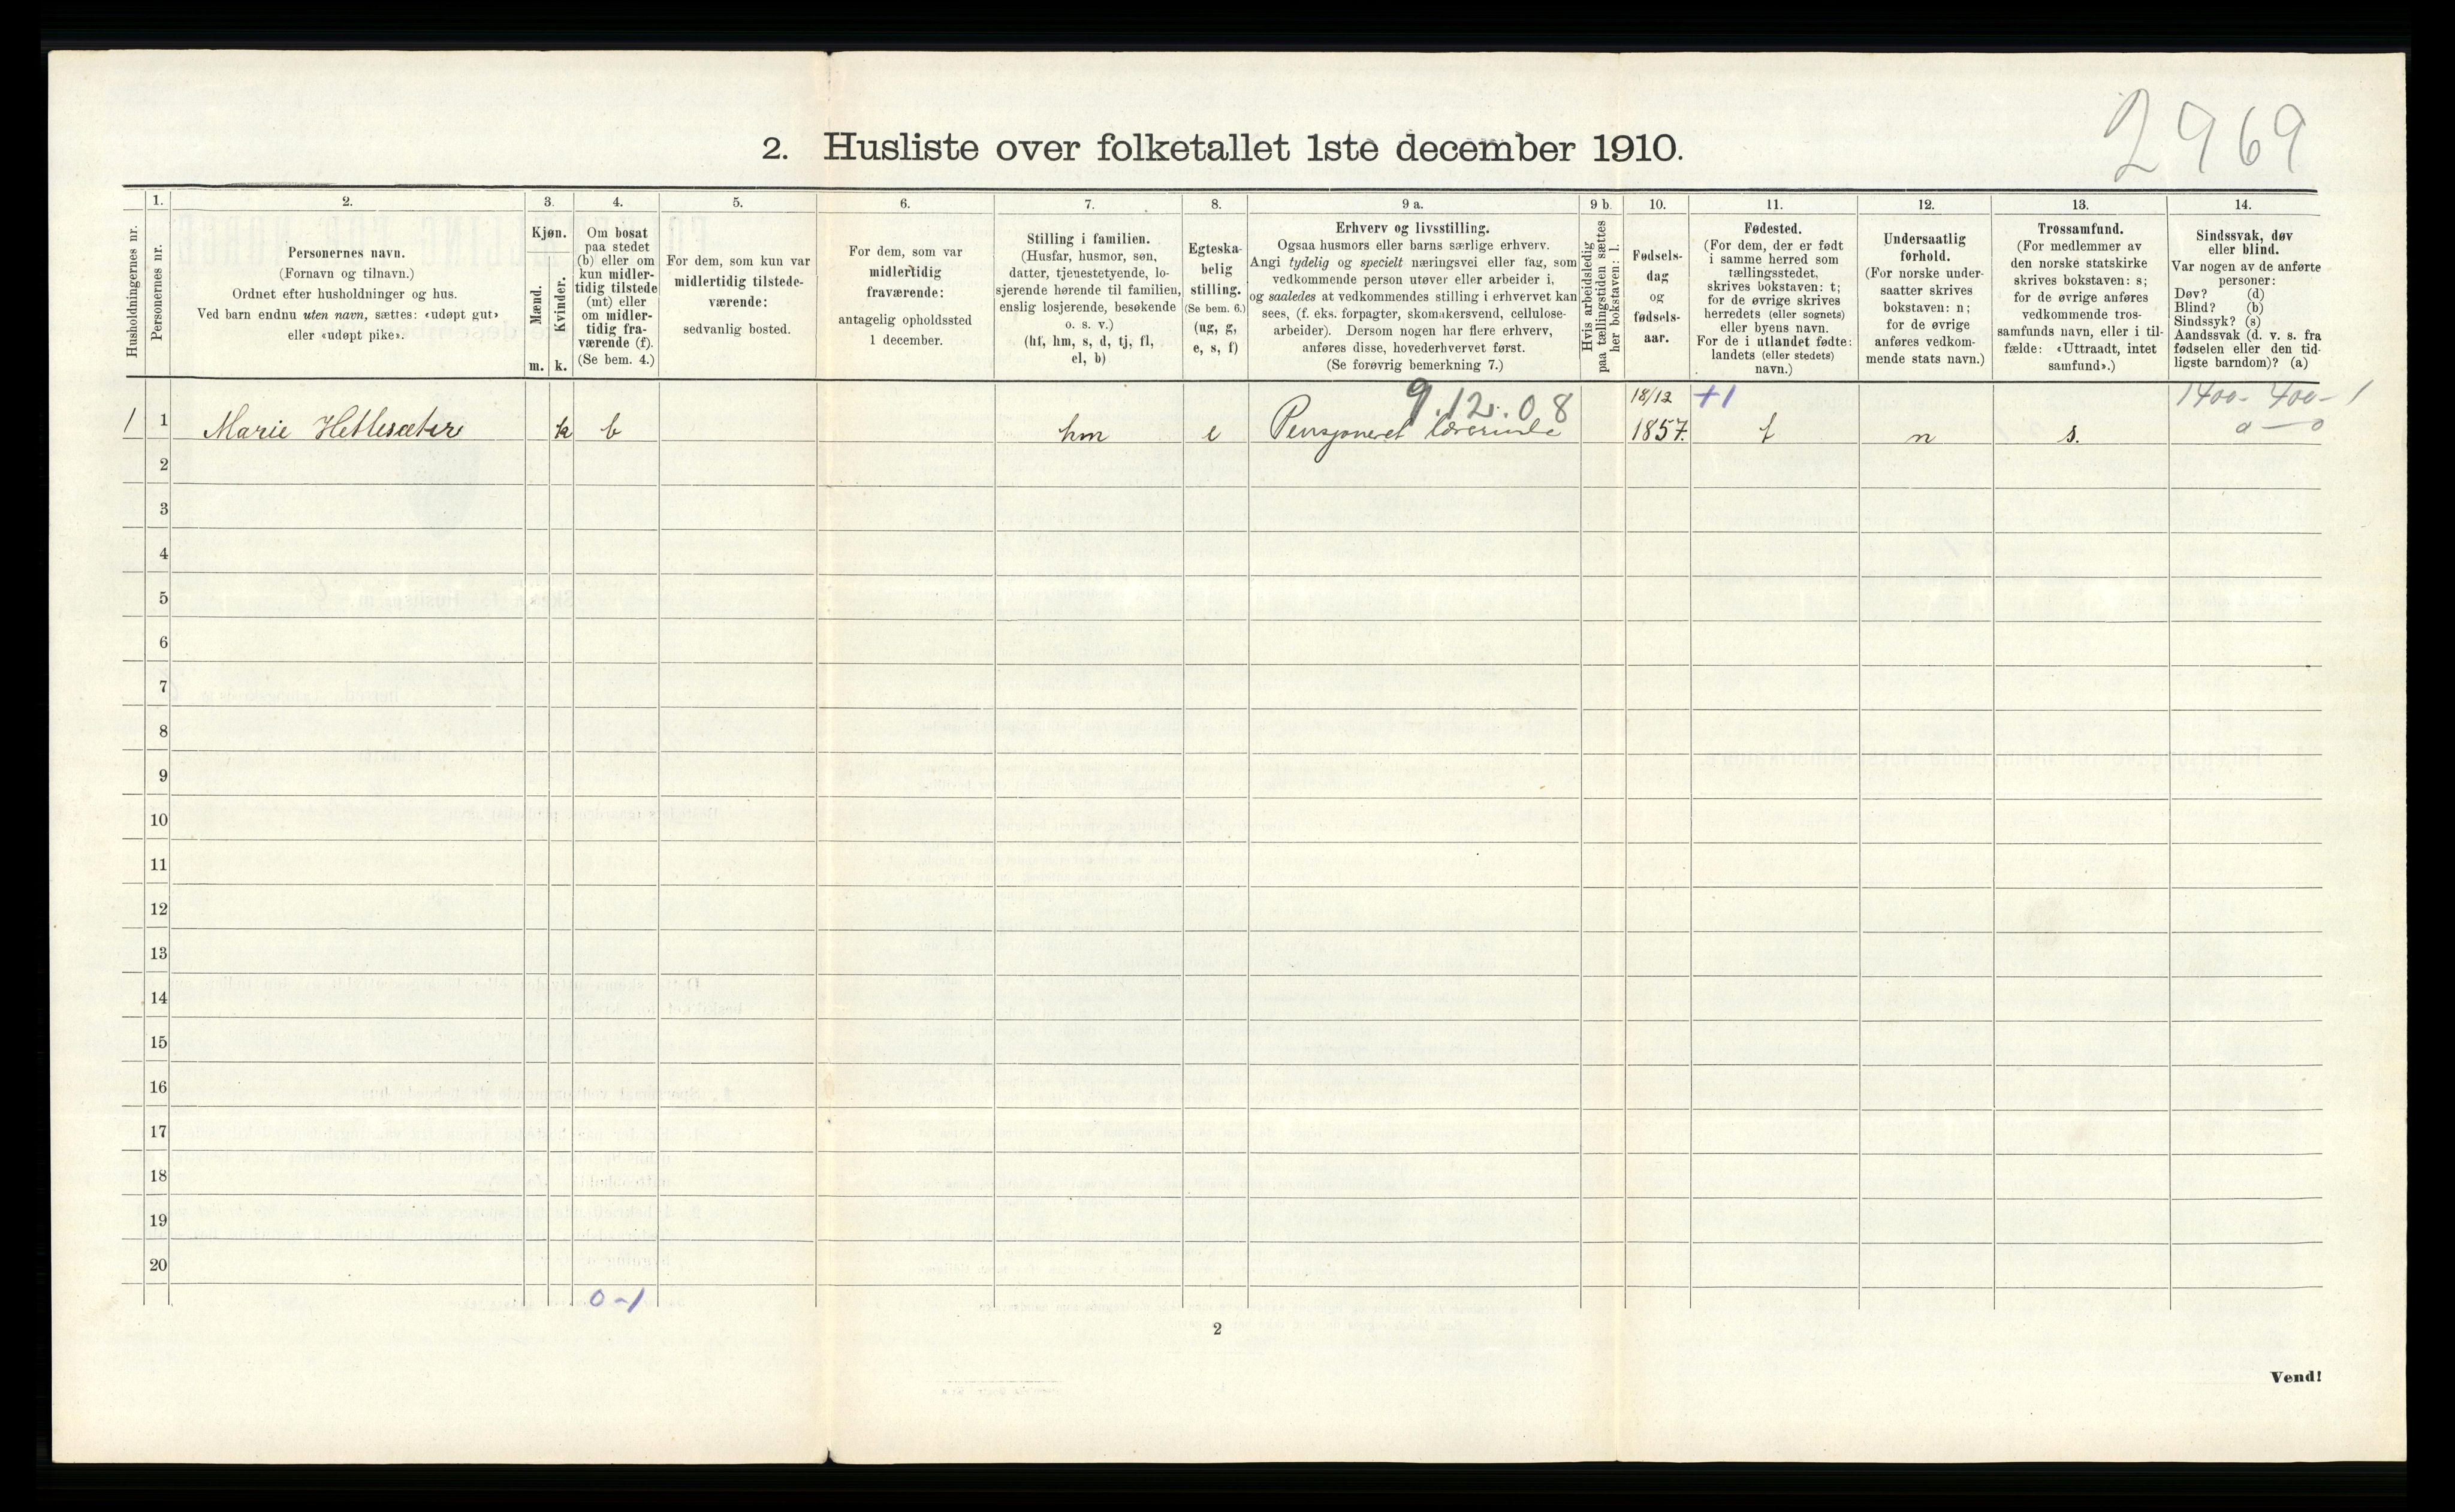 2969
2. Husliste over folketallet 1ste december 1910.
Husholdningernes nr.
1.
Personernes nr.
2.
Personernes navn.
(Fornavn og tilnavn.)
Ordnet efter husholdninger og hus.
Ved barn endnu uten navn, sættes: «udøpt gut»
eller «udøpt pike».
3.
Kjøn.
Mænd.
Kvinder.
m. k.
4.
Om bosat
paa stedet
(b) eller om
kun midler-
tidig tilstede
(mt) eller
om midler-
tidig fra-
værende (f).
(Se bem. 4.)
5.
For dem, som kun var
midlertidig tilstede-
værende:
sedvanlig bosted.
6.
For dem, som var
midlertidig
fraværende:
antagelig opholdssted
1 december.
7.
Stilling i familien.
(Husfar, husmor, søn,
datter, tjenestetyende, lo-
sjerende hørende til familien,
enslig losjerende, besøkende
o. s. v.)
(hf, hm, s, d, tj, fl,
el, b)
8.
Egteska-
belig
stilling.
(Se bem. 6.)
(ug, g,
e, s, f)
9 a.
Erhverv og livsstilling.
Ogsaa husmors eller barns særlige erhverv.
Angi tydelig og specielt næringsvei eller fag, som
vedkommende person utøver eller arbeider i,
og saaledes at vedkommendes stilling i erhvervet kan
sees, (f. eks. forpagter, skomakersvend, cellulose-
arbeider). Dersom nogen har flere erhverv,
anføres disse, hovederhvervet først.
(Se forøvrig bemerkning 7.)
9 b.
Hvis arbeidsledig
paa tællingstiden sættes
her bokstaven: l.
10.
Fødsels-
dag
og
fødsels-
aar.
11.
Fødested.
(For dem, der er født
i samme herred som
tællingsstedet,
skrives bokstaven: t;
for de øvrige skrives
herredets (eller sognets)
eller byens navn.
For de i utlandet fødte:
landets (eller stedets)
navn.)
12.
Undersaatlig
forhold.
(For norske under-
saatter skrives
bokstaven: n;
for de øvrige
anføres vedkom-
mende stats navn.)
13.
Trossamfund.
(For medlemmer av
den norske statskirke
skrives bokstaven: s;
for de øvrige anføres
vedkommende tros-
samfunds navn, eller i til-
fælde: «Uttraadt, intet
samfund».)
14.
Sindssvak, døv
eller blind.
Var nogen av de anførte
personer:
Døv? (d)
Blind? (b)
Sindssyk? (s)
Aandssvak (d. v. s. fra
fødselen eller den tid-
ligste barndom)? (a)
9.12.08 18/12 +1 1400- 400-1
1 1 Marie Hetlesæter k b hm e Pensjoneret lærerinde 1857. t n s. 0—0
2
3
4
5
6
7
8
9
10
11
12
13
14
15
16
17
18
19
20
0-1
2
Vend!